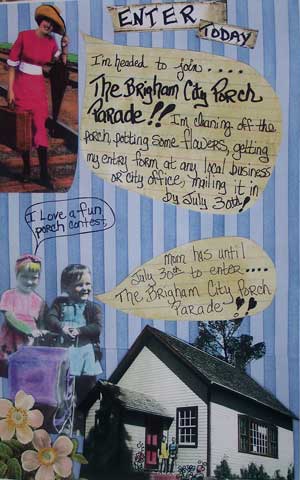 ENTER
TODAY
I'm headed to join....
The Brigham City Porch
Parade!!
I'm cleaning off the
porch, potting some flowers, getting
my entry form at any local business
or city office, mailing it in
by July 30th!
I Love a fun
porch contest,
Mom has until
July 30th to enter....
The Brigham City Porch
Parade!!